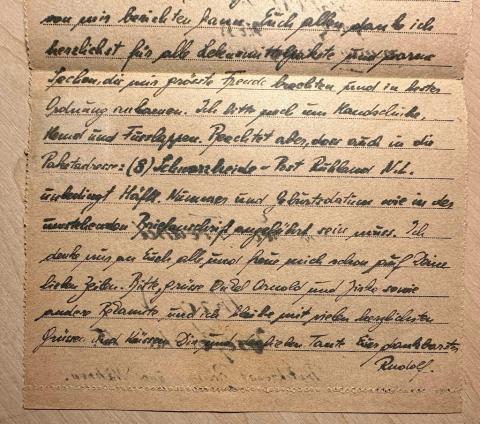 von mir berichten kann. Euch allen danke ich
herzlichst für alle Lebensmittelpakete und warme
Sachen, die mir grösste Freude brachten und in bester
Ordnung ankamen. Ich bitte noch um Handschuhe,
Hemd und Fusslappen. Beachtet aber, dass auch in die
Paketadresse: (8) Schwarzheide - Post Ruhland N.L.
unbedingt Häftl. Nummer und Geburtsdatum wie in der
umstehenden Briefanschrift angeführt sein muss. Ich
denke nur an Euch alle und freue mich schon auf Deine
lieben Zeilen. Bitte grüsse Onkel Arnold und sowie
andere Bekannte und ich bleibe mit vielen herzlichsten
Grüssen und Küssen Dir und der lieben Tant Euer dankbarster
Rudolf.